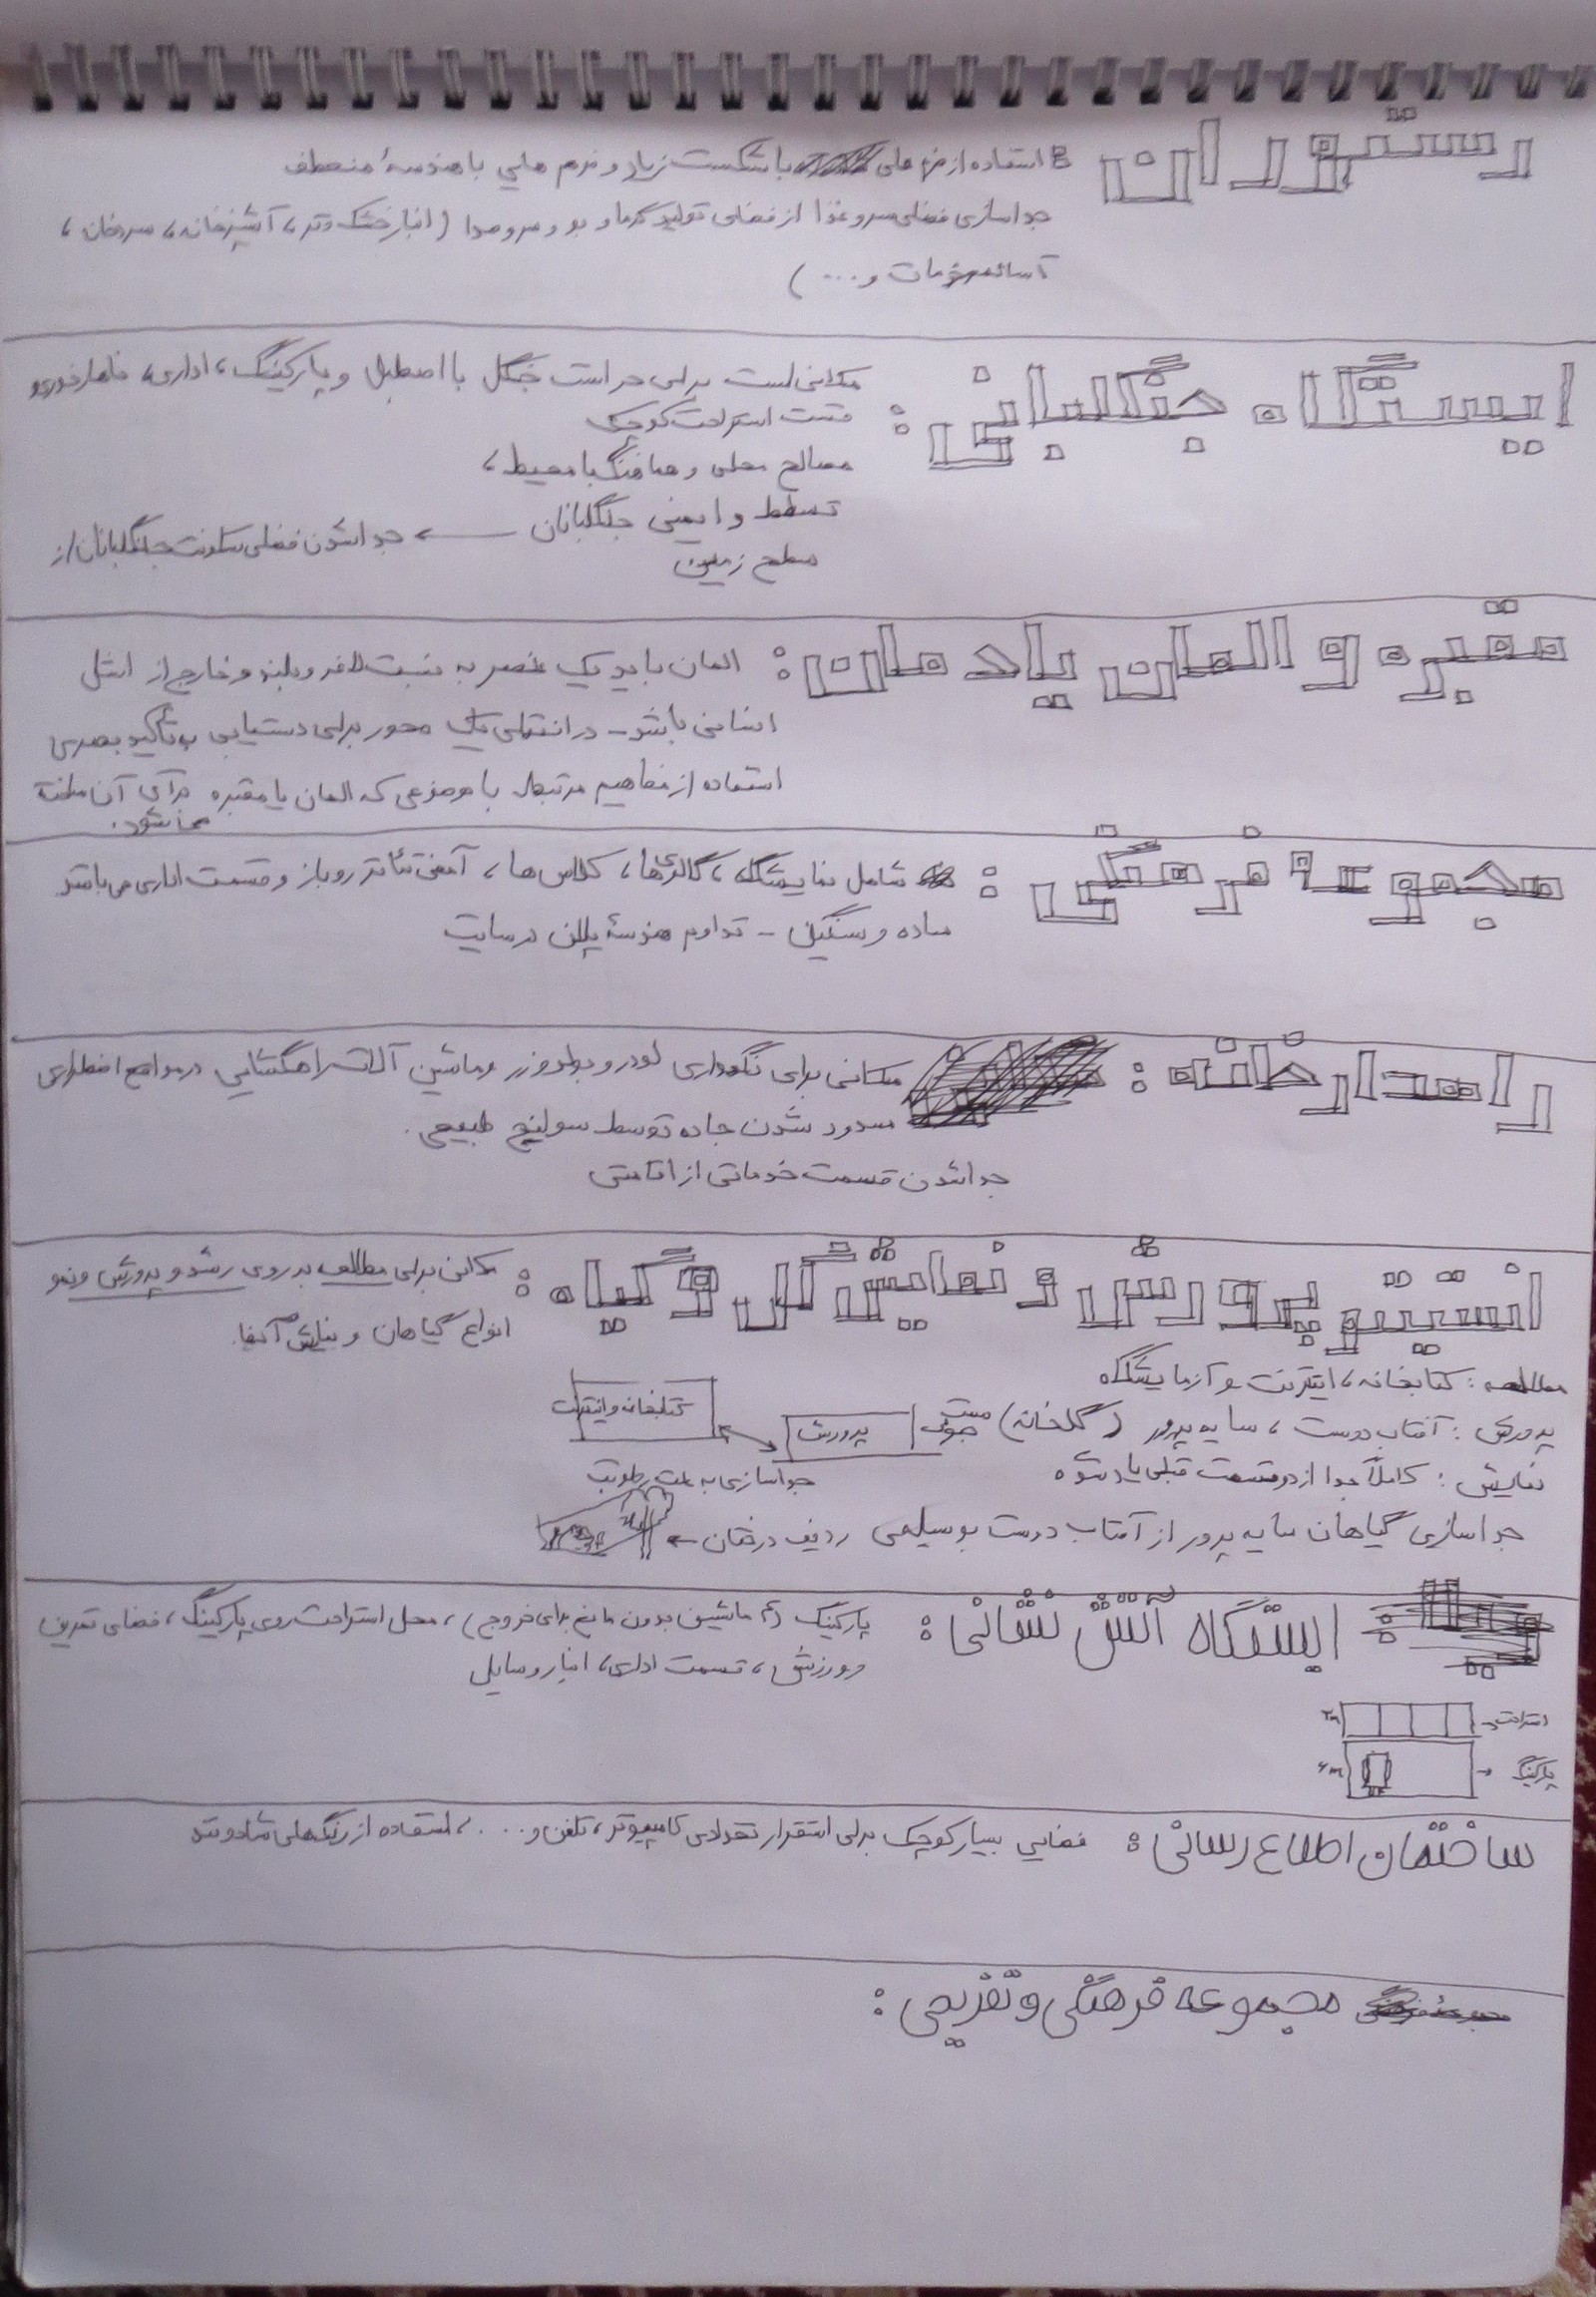 رستوران : استفاده از فرم های با شکست زیاد و فرم هایی با هندسهٔ منعطف
جداسازی فضای سرو غذا از فضای تولید گرما و بو و سر و صدا (انبار خشک و تر، آشپزخانه، سردخانه،
و ...)
ایستگاه جنگلبانی : مکانی است برای حراست جنگل با اصطبل و پارکینگ، اداری، ناهارخوری و
قسمت استراحت کوچک
مصالح محلی و هماهنگ با محیط،
تسلط و ایمنی جنگلبانان ← جدا شدن فضای سکونت جنگلبانان از
سطح زمین
مقبره و المان یادمان : المان باید یک عنصر به نسبت لاغر و بلند و خارج از اشل
انسانی باشد - در انتهای یک محور برای دستیابی به تأکید بصری
استفاده از مفاهیم مرتبط با موضوعی که المان یا مقبره برای آن ساخته
می شود.
مجموعهٔ فرهنگی : شامل نمایشگاه، گالری ها، کلاس ها، آمفی تئاتر روباز و قسمت اداری می باشد
ساده و سنگین - تداوم هندسهٔ پلان در سایت
راهدارخانه : مکانی برای نگهداری لودر و بولدوزر و ماشین آلات راهگشایی در مواقع اضطراری
مسدود شدن جاده توسط سوانح طبیعی.
جدا شدن قسمت خدماتی از اقامتی
انستیتو پرورش و نمایش گل و گیاه : مکانی برای مطالعه بر روی رشد و پرورش و نمو
انواع گیاهان و نمایش آنها.
مطالعه : کتابخانه، اینترنت و آزمایشگاه
کتابخانه و اینترنت
پرورش : آفتاب دوست، سایه پرور (گلخانه)
پرورش
نمایش : کاملاً جدا از دو قسمت قبلی یاد شده
جداسازی به علت رطوبت
جداسازی گیاهان سایه پرور از آفتاب دوست بوسیله ی ردیف درختان ←
ایستگاه آتش نشانی : پارکینگ (۴ ماشین بدون مانع برای خروج)، محل استراحت روی پارکینگ، فضای تمرین
و ورزش، قسمت اداری، انبار وسایل
استراحت
پارکینگ
ساختمان اطلاع رسانی : فضایی بسیار کوچک برای استقرار تعدادی کامپیوتر، تلفن و ...، استفاده از رنگ های شاد و تند
مجموعه فرهنگی و تفریحی :